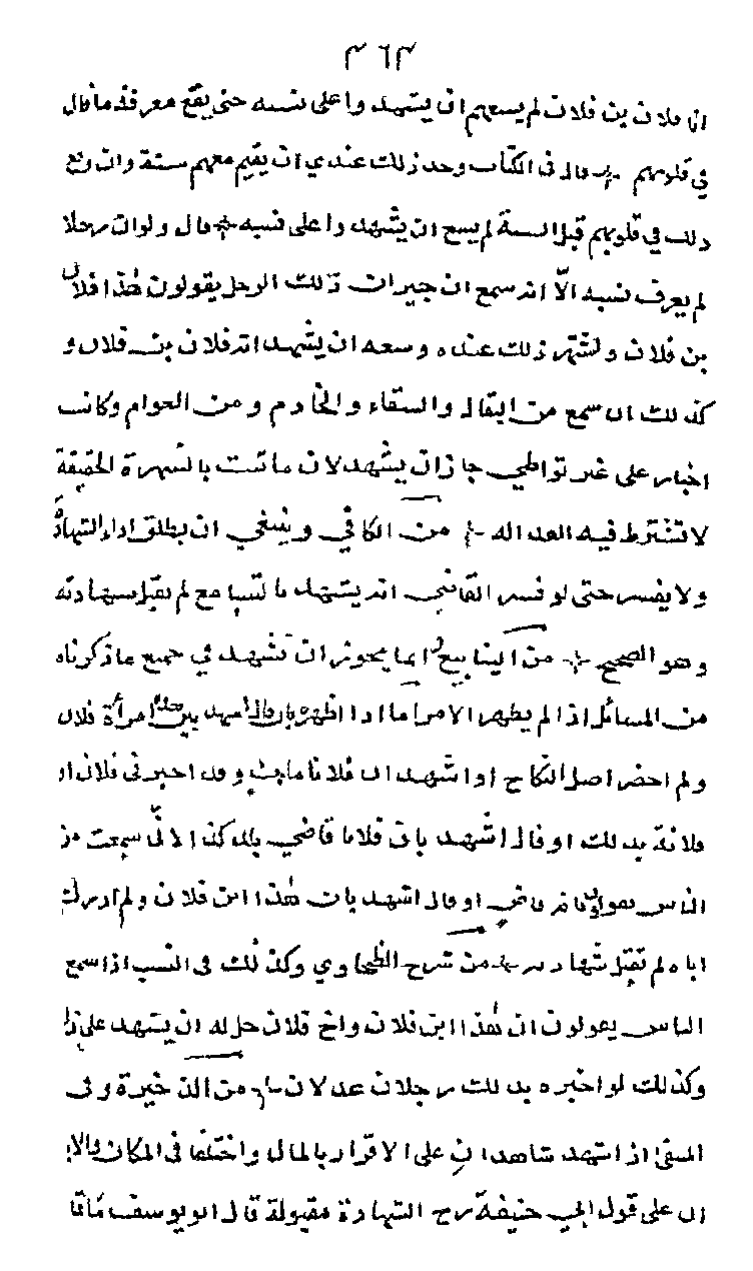 ٣٦٣
ان فلان بن فلان لم يسعهم ان يشهدوا على نسبه حتى يقع معرفة ما قال
في قلوبهم قال في الكتاب وحد ذلك عندي ان يقيم معهم سنة وان وقع
ذلك في قلوبهم قبل السنة لم يسع ان يشهدوا على نسبه قال ولو ان رجلا
لم يعرف نسبه الّا انه سمع ان جيران ذلك الرجل يقولون هٰذا فلان
بن فلان واشتهر ذلك عنده وسعه ان يشهد انه فلان بن فلان و
كذلك ان سمع من البقال والسقاء والخادم ومن العوام وكانت
اخبار على غير تواطي جاز ان يشهد لان ما تثبت بالشهرة الحقيقة
لا تشترط فيه العداله من الكافي وينبغي ان يطلق اداء الشهادة
ولا يفسر حتى لو فسر القاضي انه يشهد بالتسامع لم يقبل شهادته
وهو الصحيح من الينابيع انما يجوز ان تشهد في جميع ما ذكرناه
من المسائل اذا لم يظهر الامر اما اذا اظهره بان قال اشهد بين هذه امرأة فلان
ولم احضر اصل النكاح او اشهد ان فلانا مات وقد اخبرني فلان او
فلانة بذلك او قال اشهد بان فلانا قاضي بلد كذا لانّى سمعت من
الناس يقولون انه قاضي او قال اشهد بان هٰذا ابن فلان ولم ادرك
اباه لم تقبل شهادته من شرح الطحاوي وكذلك في النسب اذا سمع
الناس يقولون ان هٰذا ابن فلان واخ فلان حل له ان يشهد على ذلك
وكذلك لو اخبره بذلك رجلان عدلان من الذخيرة وفى
المنتقى اذا شهد شاهدان على الاقرار بالمال واختلفا في المكان والا
ان على قول ابي حنيفة رح الشهادة مقبولة قال ابو يوسف